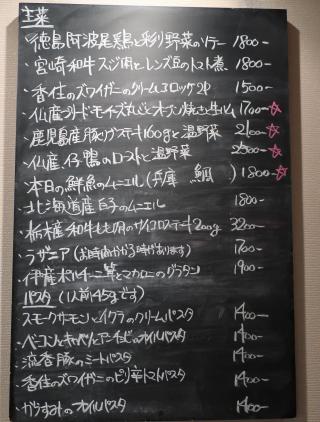 主菜
・徳島阿波尾鶏と彩り野菜のソテー 1800-
・宮崎和牛スジ肉とレンズ豆のトマト煮 1800-
・香住のズワイガニのクリームコロッケ2P 1500-
・仏産 1700-☆
・鹿児島産豚 ステーキ160gと温野菜 2100-☆
・仏産仔鴨のローストと温野菜 2500-☆
・本日の鮮魚のムニエル(兵庫 鯛 ) 1800-☆
・北海道産白子のムニエル 1800-
・栃木産和牛もも肉のサイコロステーキ200g 3200-
・ラザニア(お時間かかる時があります) 1700-
・伊産ポルチーニ茸とマカロニのグラタン 1900-
パスタ(1人前45gです)
・スモークサーモンとイクラのクリームパスタ 1400-
・ベーコンとキャベツとアンチョビのオイルパスタ 1400-
・流香豚のミートパスタ 1400-
・香住のズワイガニのピリ辛トマトパスタ 1400-
・カラスミのオイルパスタ 1400-